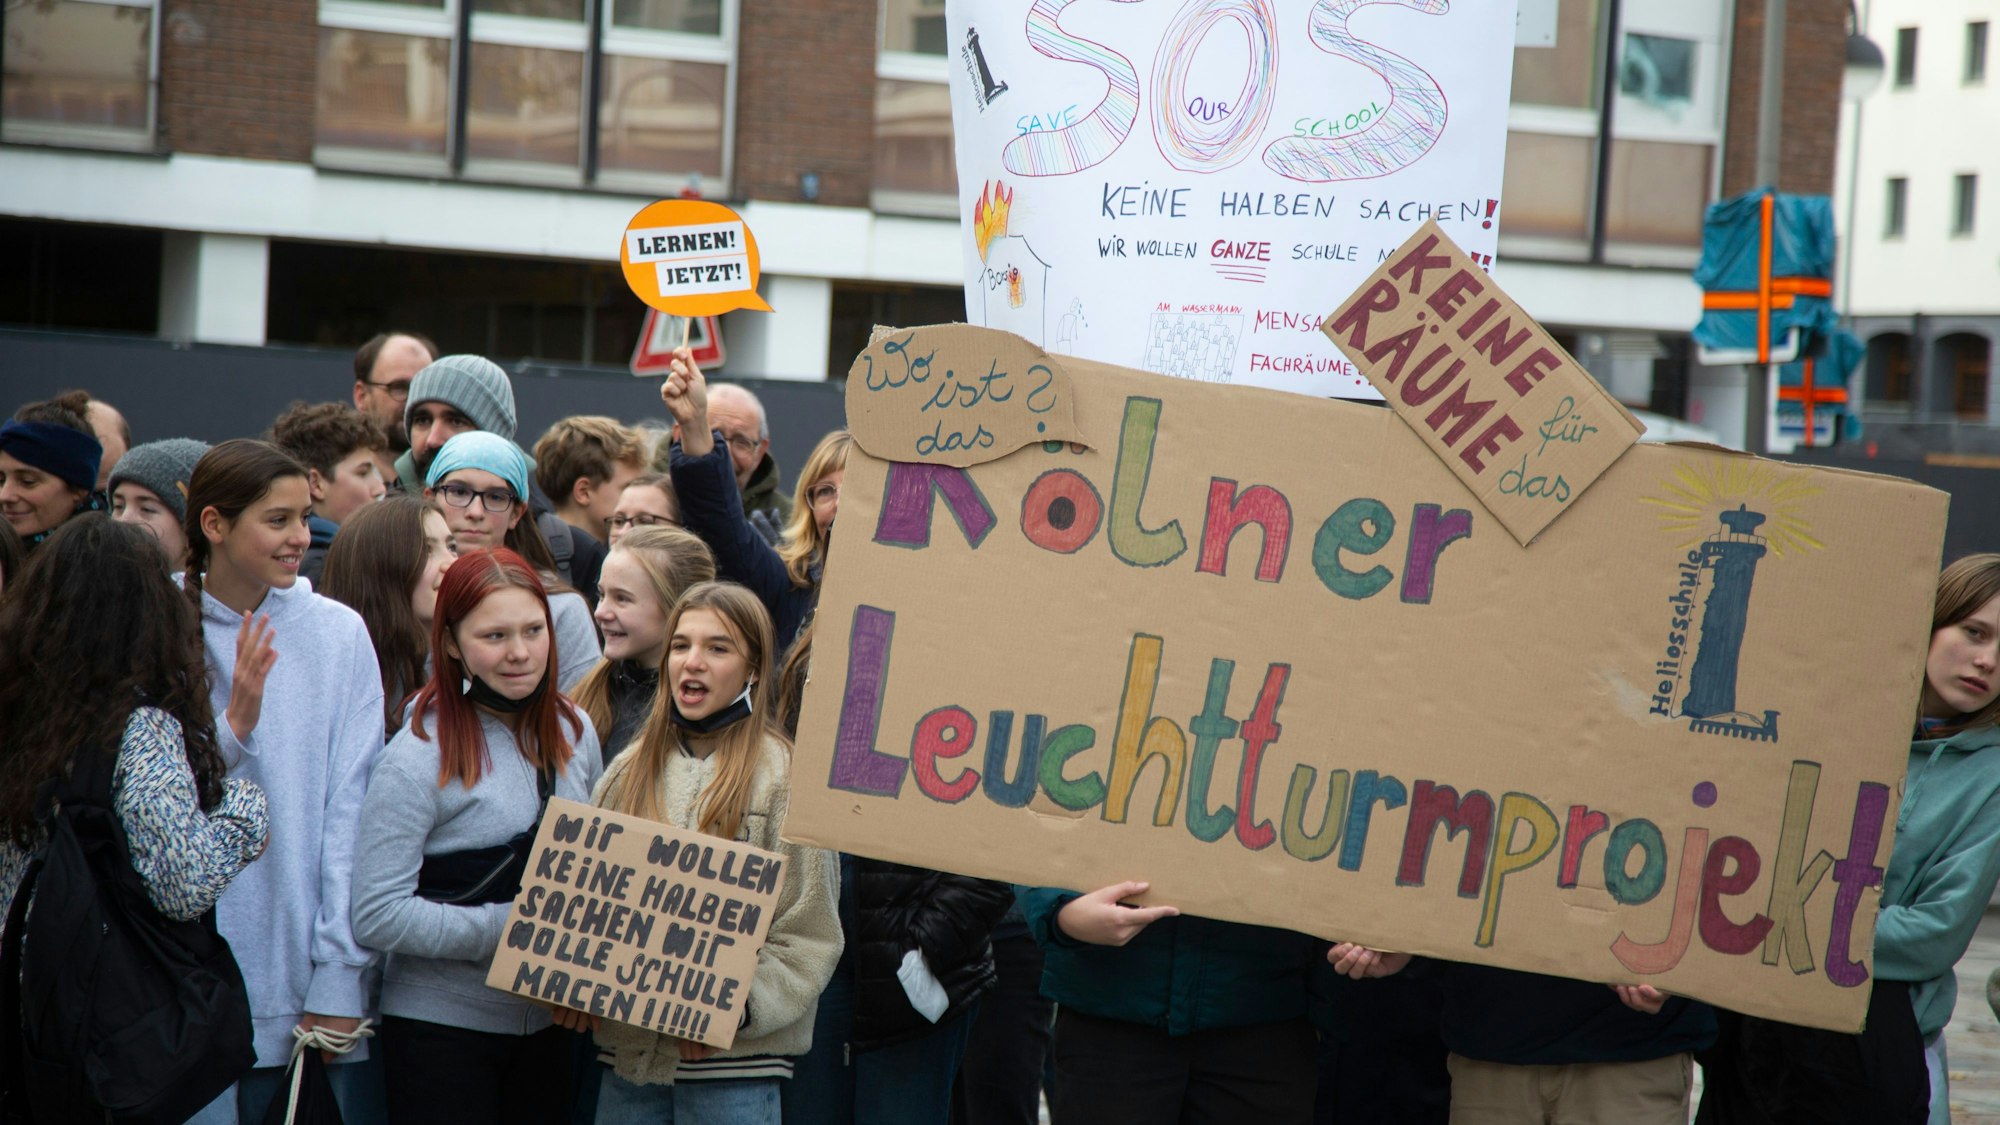 SOS
SAVE OUR SCHOOL
Heliosschule
KEINE HALBEN SACHEN!
WIR WOLLEN GANZE SCHULE
AM WASSERMANN
MENSA
FACHRÄUME
LERNEN!
JETZT!
Wo
ist
das?
KEINE
RÄUME
für
das
Kölner
Leuchtturmprojekt
Heliosschule
WIR WOLLEN
KEINE HALBEN
SACHEN WIR
WOLLE SCHULE
MACEN!!!!!!